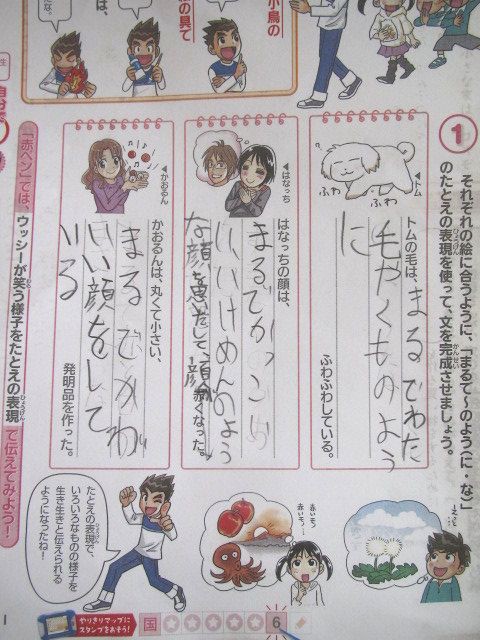 小鳥の
の具で
1
それぞれの絵に合うように、「まるで～のよう(に・な)」
のたとえの表現を使って、文を完成させましょう。
トム
ふわ
ふわ
トムの毛は、まるでわた
毛やくものよう
に
ふわふわしている。
はなっち
はなっちの顔は、
まるでかっこ
いいいけめんのよう
な顔を
赤くなった。
かおるん
かおるんは、丸くて小さい、
まるで
いい顔をして
いる
発明品を作った。
赤いモノ
赤いモノ
たとえの表現で、
いろいろなものの様子を
生き生きと伝えられる
ようになったね!
「赤ペン」では、ウッシーが笑う様子をたとえの表現で伝えてみよう!
やりきりマップに
スタンプをおそう!
国
6